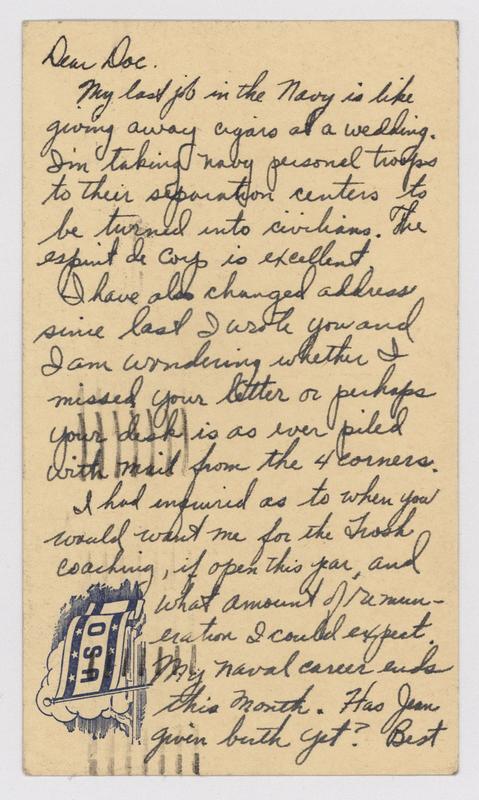 Dear Doc.
My last job in the Navy is like
giving away cigars at a wedding.
I'm taking navy personal troops
to their separation centers to
be turned into civilians. The
esprit de Corp is excellent
I have also changed address
since last I wrote you and
I am wondering whether I
missed your letter or perhaps
your desk is as ever piled
with mail from the 4 corners.
I had inquired as to when you
would want me for the Frosh
coaching, if open this year, and
what amount of remun-
eration I could expect.
My naval career ends
this month. Has Jean
given birth yet? Best
USO